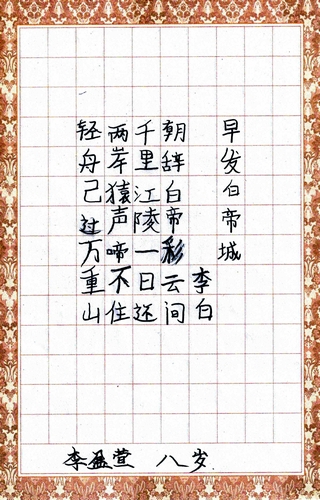 早发白帝城
李白
朝辞白帝彩云间
千里江陵一日还
两岸猿声啼不住
轻舟己过万重山
李盈莹 八岁